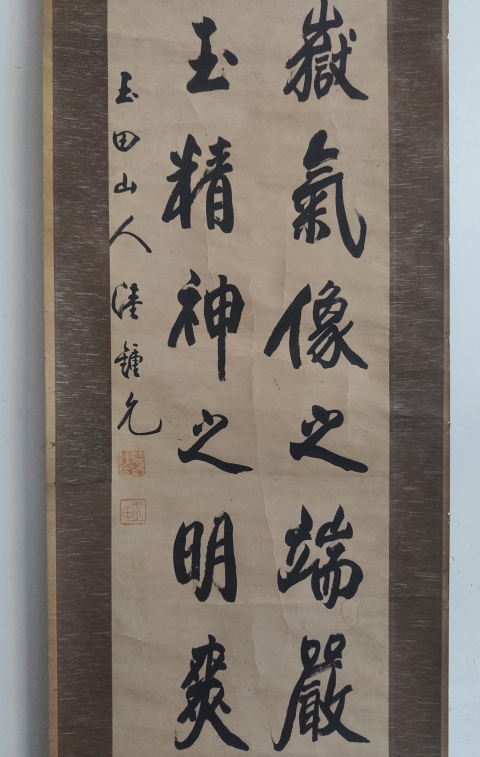 嶽氣像之端嚴
玉精神之明爽
玉田山人 鍾允
玉田